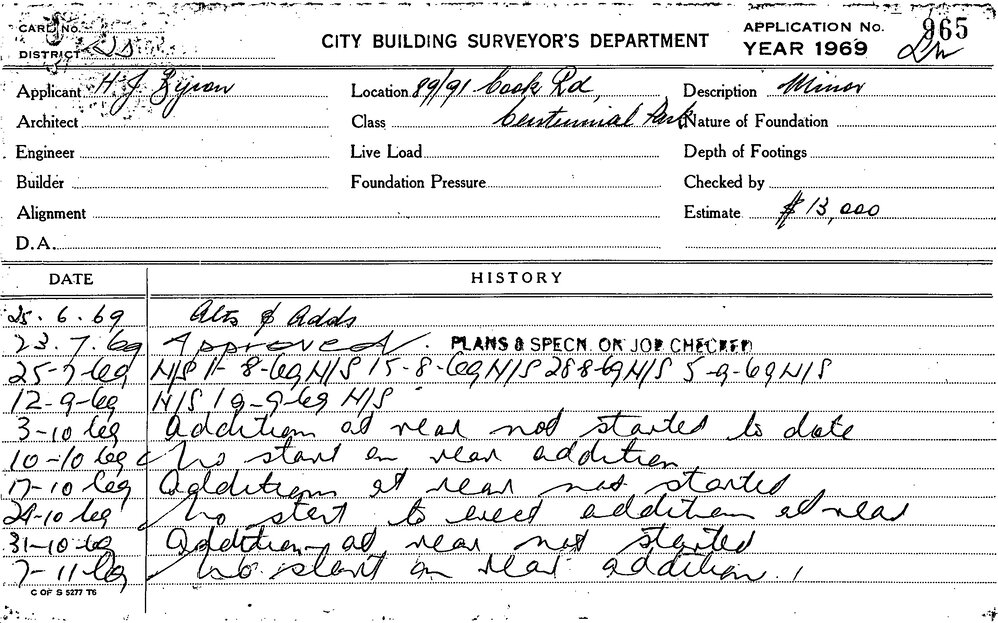 CARD No.
DISTRICT
CITY BUILDING SURVEYOR'S DEPARTMENT
APPLICATION No. 965
YEAR 1969
Applicant H. J. Location 89/91 Cook Rd, Description Minor
Architect Class Centennial Park Nature of Foundation
Engineer Live Load Depth of Footings
Builder Foundation Pressure Checked by
Alignment Estimate $13,000
D.A.
DATE HISTORY
25.6.69 Alts & Adds
23.7.69 Approved. PLANS & SPECN. ON JOB CHECKED
25-7-69 N/S 1-8-69 N/S 15-8-69 N/S 28 8 69 N/S 5-9-69 N/S
12-9-69 N/S 19-9-69 N/S
3-10 69 Addition at rear not started to date
10-10 69 No start on rear addition
17-10 69 Addition at rear not started
24-10 69 No start to erect addition at rear
31-10-69 Addition at rear not started
7-11-69 No start on rear addition.
C OF S 5277 T6